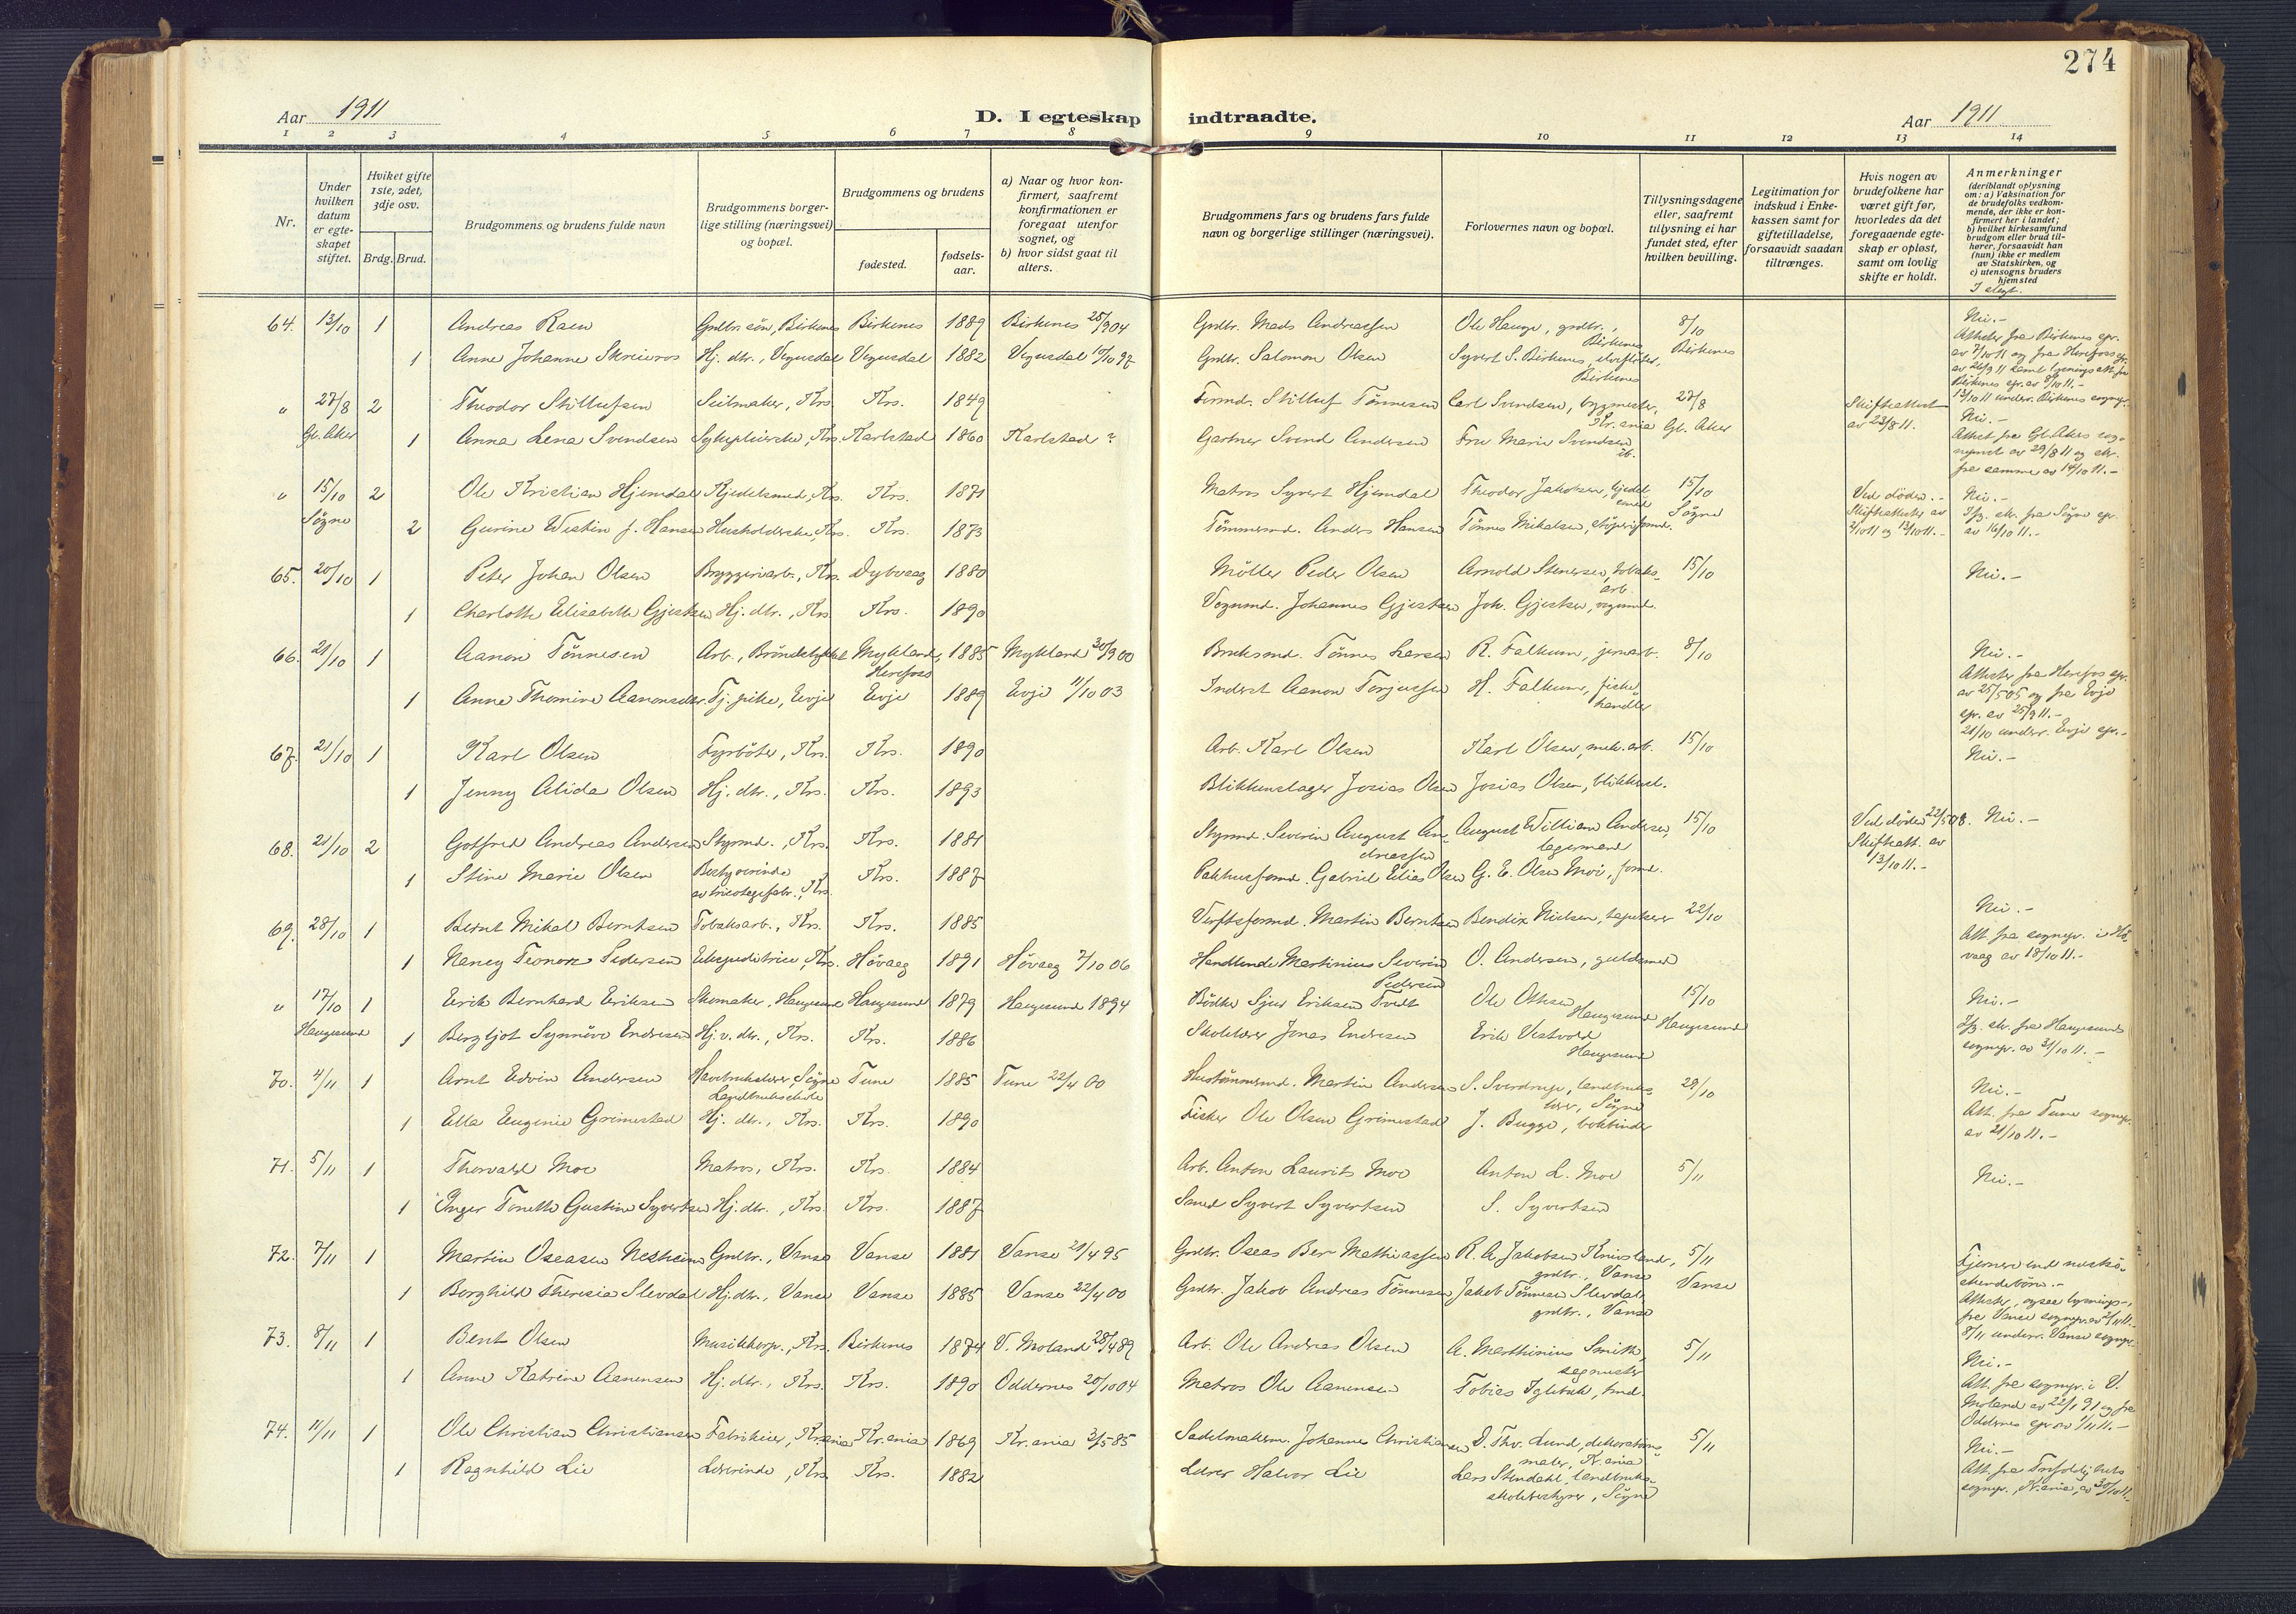 274
Aar 1911
D. I egteskap indtraadte.
Aar 1911
1 2 3 4 5 6 7 8 9 10 11 12 13 14
Nr.
Under hvilken datum er egteskapet stiftet.
Hviket gifte 1ste, 2det, 3dje osv.
Brdg. Brud.
Brudgommens og brudens fulde navn
Brudgommens borgerlige stilling (næringsvei) og bopæl.
Brudgommens og brudens
fødested.
fødselsaar.
a) Naar og hvor konfirmert, saafremt konfirmationen er foregaat utenfor sognet, og
b) hvor sidst gaat til alters.
Brudgommens fars og brudens fars fulde navn og borgerlige stillinger (næringsvei).
Forlovernes navn og bopæl.
Tillysningsdagene eller, saafremt tillysning ei har fundet sted, efter hvilken bevilling.
Legitimation for indskud i Enkekassen samt for giftetilladelse, forsaavidt saadan tiltrænges.
Hvis nogen av brudefolkene har været gift før, hvorledes da det foregaaende egteskap er opløst, samt om lovlig skifte er holdt.
Anmerkninger
(deriblandt oplysning om: a) Vaksination for de brudefolks vedkommende, der ikke er konfirmert her i landet; b) hvilket kirkesamfund brudgom eller brud tilhører, forsaavidt han (hun) ikke er medlem av Statskirken, og c) utensogns bruders hjemsted
I slegt.
64. 13/10 1 Andreas Raen Grdbr. søn, Birkenes Birkenes 1889 Birkenes 25/9 04 Grdbr. Mads Andreassen Ole Hauge, grdbr., Birkenes 8/10 Birkenes Nei.-
1 Anne Johanne Skreivros Hj. dtr., Vegusdal Vegusdal 1882 Vegusdal 10/10 97 Grdbr. Salomon Olsen Syvert S. Birkenes, elvefløter, Birkenes
Attester fra Birkenes spr. av 7/10 11 og fra Herefoss spr. av 26/9 11 samt lysningsatt. fra Birkenes spr. av 8/10 11.-
13/10 11 underr. Birkenes sognepr.
" 27/8 Gl. Aker 2 Theodor Stillufsen Seilmaker, Krs. Krs. 1849 Tømmd. Stilluf Tønnesen Carl Svendsen, byggmester, Kr.ania 27/8 Gl. Aker Skifteattest av 23/8 11. Nei.-
1 Anna Lena Svendsen Sykepleierske, Krs. Karlstad 1860 Karlstad ? Gartner Svend Andersen Fru Marie Svendsen ib.
Attest fra Gl. Akers sognepræst av 29/8 11 og skr. fra samme av 14/10 11.-
" 15/10 Søgne 2 Ole Kristian Hjemdal Kjedelsmed, Krs. Krs. 1871 Matros Syvert Hjemdal Theodor Jakobsen, kjedelsmed 15/10 Søgne Ved døden.- Nei.-
2 Gurine Westin f. Hansen Husholderske, Krs. Krs. 1873 Tømmermd. Anders Hansen Tønnes Mikalsen, støperiformd. Skifteattester av 2/10 11 og 13/10 11.- Ifg. skr. fra Søgne spr. av 16/10 11.-
65. 20/10 1 Peter Johan Olsen Bryggeriarb., Krs. Dybvaag 1880 Møller Peder Olsen Arnold Stenersen, tobaksarb. 15/10 Nei.-
1 Charlotte Elisabeth Gjertsen Hj. dtr., Krs. Krs. 1890 Vognmd. Johannes Gjertsen Joh. Gjertsen, vognmd.
66. 21/10 1 Aanon Tønnesen Arb., Brøndelykket Mykland, Herefoss 1885 Mykland 30/9 00 Bruksmd. Tønnes Larsen R. Falkum, jernarb. 8/10 Nei.-
1 Anne Thomine Aanonsdtr. Tj. pike, Evje Evje 1889 Evje 11/10 03 Inderst Aanon Torjussen H. Falkum, fiskehandler
Attester fra Herefos spr. av 25/5 05 og fra Evje spr. av 25/9 11.-
21/10 underr. Evje spr.-
67. 21/10 1 Karl Olsen Fyrbøter, Krs. Krs. 1890 Arb. Karl Olsen Karl Olsen, mek. arb. 15/10 Nei.-
1 Jenny Alida Olsen Hj. dtr., Krs. Krs. 1893 Blikkenslager Josias Olsen Josias Olsen, blikkensl.
68. 21/10 2 Gotfred Andreas Andersen Styrmd., Krs. Krs. 1881 Styrmd. Severin August Andreassen August William Andersen, lagermand 15/10 Ved døden 22/5 08. Skifteatt. av 13/10 11.- Nei.-
1 Stine Marie Olsen Bestyrerinde av tricotagefabr., Krs. Krs. 1887 Pakhusformd. Gabriel Elias Olsen G. E. Olsen Moi, formd.
69. 28/10 1 Bernt Mikal Berntsen Tobaksarb., Krs. Krs. 1885 Verftsformd. Martin Berntsen Bendix Nielsen, tapetserer 22/10 Nei.-
1 Nancy Leonore Pedersen Ekspeditrice, Krs. Høvaag 1891 Høvaag 7/10 06 Handlende Martinius Severin Pedersen O. Andersen, guldsmed
Att. fra sognepr. i Høvaag av 18/10 11.-
" 17/10 Haugesund 1 Eerik Bernhard Eriksen Skomaker, Haugesund Haugesund 1879 Haugesund 1894 Bødker Sjur Eriksen Tvedt Ole Ottesen Haugesund 15/10 Haugesund Nei.-
1 Bergljot Synnøve Endresen Hj. v. dtr., Krs. Krs. 1886 Skolelærer Jonas Endresen Erik Vestvold Haugesund
Ifg. skr. fra Haugesunds sognepr. av 31/10 11.-
70. 4/11 1 Arnt Edvin Andersen Havebrukslærer, Søgne Landbruksskole Tune 1885 Tune 22/4 00 Hustømmermd. Martin Andersen S. Sverdrup, landbrukslærer, Søgne 29/10 Nei.-
1 Ella Eugenie Grimestad Hj. dtr., Krs. Krs. 1890 Fisker Ole Olsen Grimestad J. Bugge, bokbinder
Att. fra Tune sognepr. av 21/10 11.-
71. 5/11 1 Thorvald Moe Matros, Krs. Krs. 1884 Arb. Anton Laurits Moe Anton L. Moe 5/11 Nei.-
1 Inger Tonette Gustine Syvertsen Hj. dtr., Krs. Krs. 1887 Smed Syvert Syvertsen S. Syvertsen
72. 7/11 1 Martin Oseasen Nesheim Grdbr., Vanse Vanse 1881 Vanse 21/4 95 Grdbr. Oseas Ber Mathiassen R. A. Jakobsen Knivsland, grdbr., Vanse 5/11 Vanse Fjernere end næstsøskendebørn.-
1 Borghild Theresia Slevdal Hj. dtr., Vanse Vanse 1885 Vanse 22/4 00 Grdbr. Jakob Andreas Tønnesen Jakob Tønnesen Slevdal, grdbr., Vanse
Attester, ogsaa lysnings-, fra Vanse sognepr. av 5/11 11.-
8/11 underr. Vanse sognepr.
73. 8/11 1 Bent Olsen Musikkorp., Krs. Birkenes 1874 V. Moland 28/4 89 Arb. Ole Andreas Olsen A. Marthinius Smith, segmester 5/11 Nei.-
1 Anne Katrine Aanensen Hj. dtr., Krs. Krs. 1890 Oddernes 20/10 04 Matros Ole Aanensen Tobias Iglebæk, tmd.
Att. fra sognepr. i V. Moland av 22/1 91 og fra Oddernes spr. av 1/11 11.-
74. 11/11 1 Ole Christian Christiansen Fabrikeier, Kr.ania Kr.ania 1869 Kr.ania 3/5 85 Sadelmakerm. Johannes Christiansen D. Thv. Lund, dekorationsmaler, Kr.ania 5/11 Nei.-
1 Ragnhild Lie Lærerinde, Krs. Krs. 1882 Lærer Halvor Lie Lars Stendahl, landbruksskolebestyrer, Søgne
Att. fra Trefoldigheds sognepr., Kr.ania, av 30/10 11.-